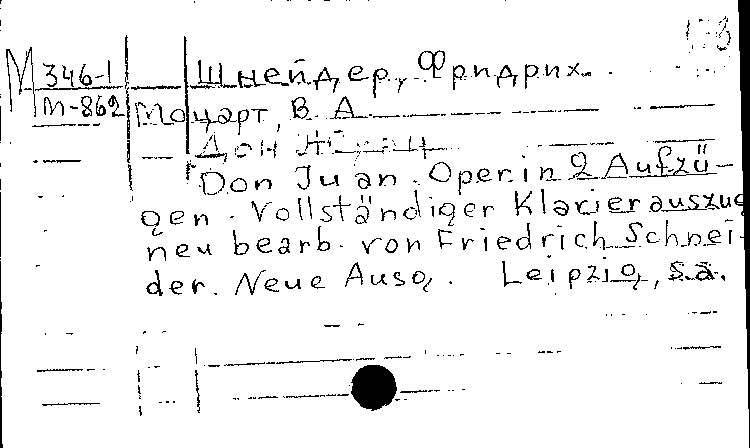 М 346-1 Шнейдер, Фридрих.
М-862 Моцарт, В. А.
Дон Жуан
Don Juan. Oper in 2 Aufzü-
gen. Vollständiger Klavierauszug
neu bearb. von Friedrich Schnei-
der. Neue Ausg. Leipzig, s.a.